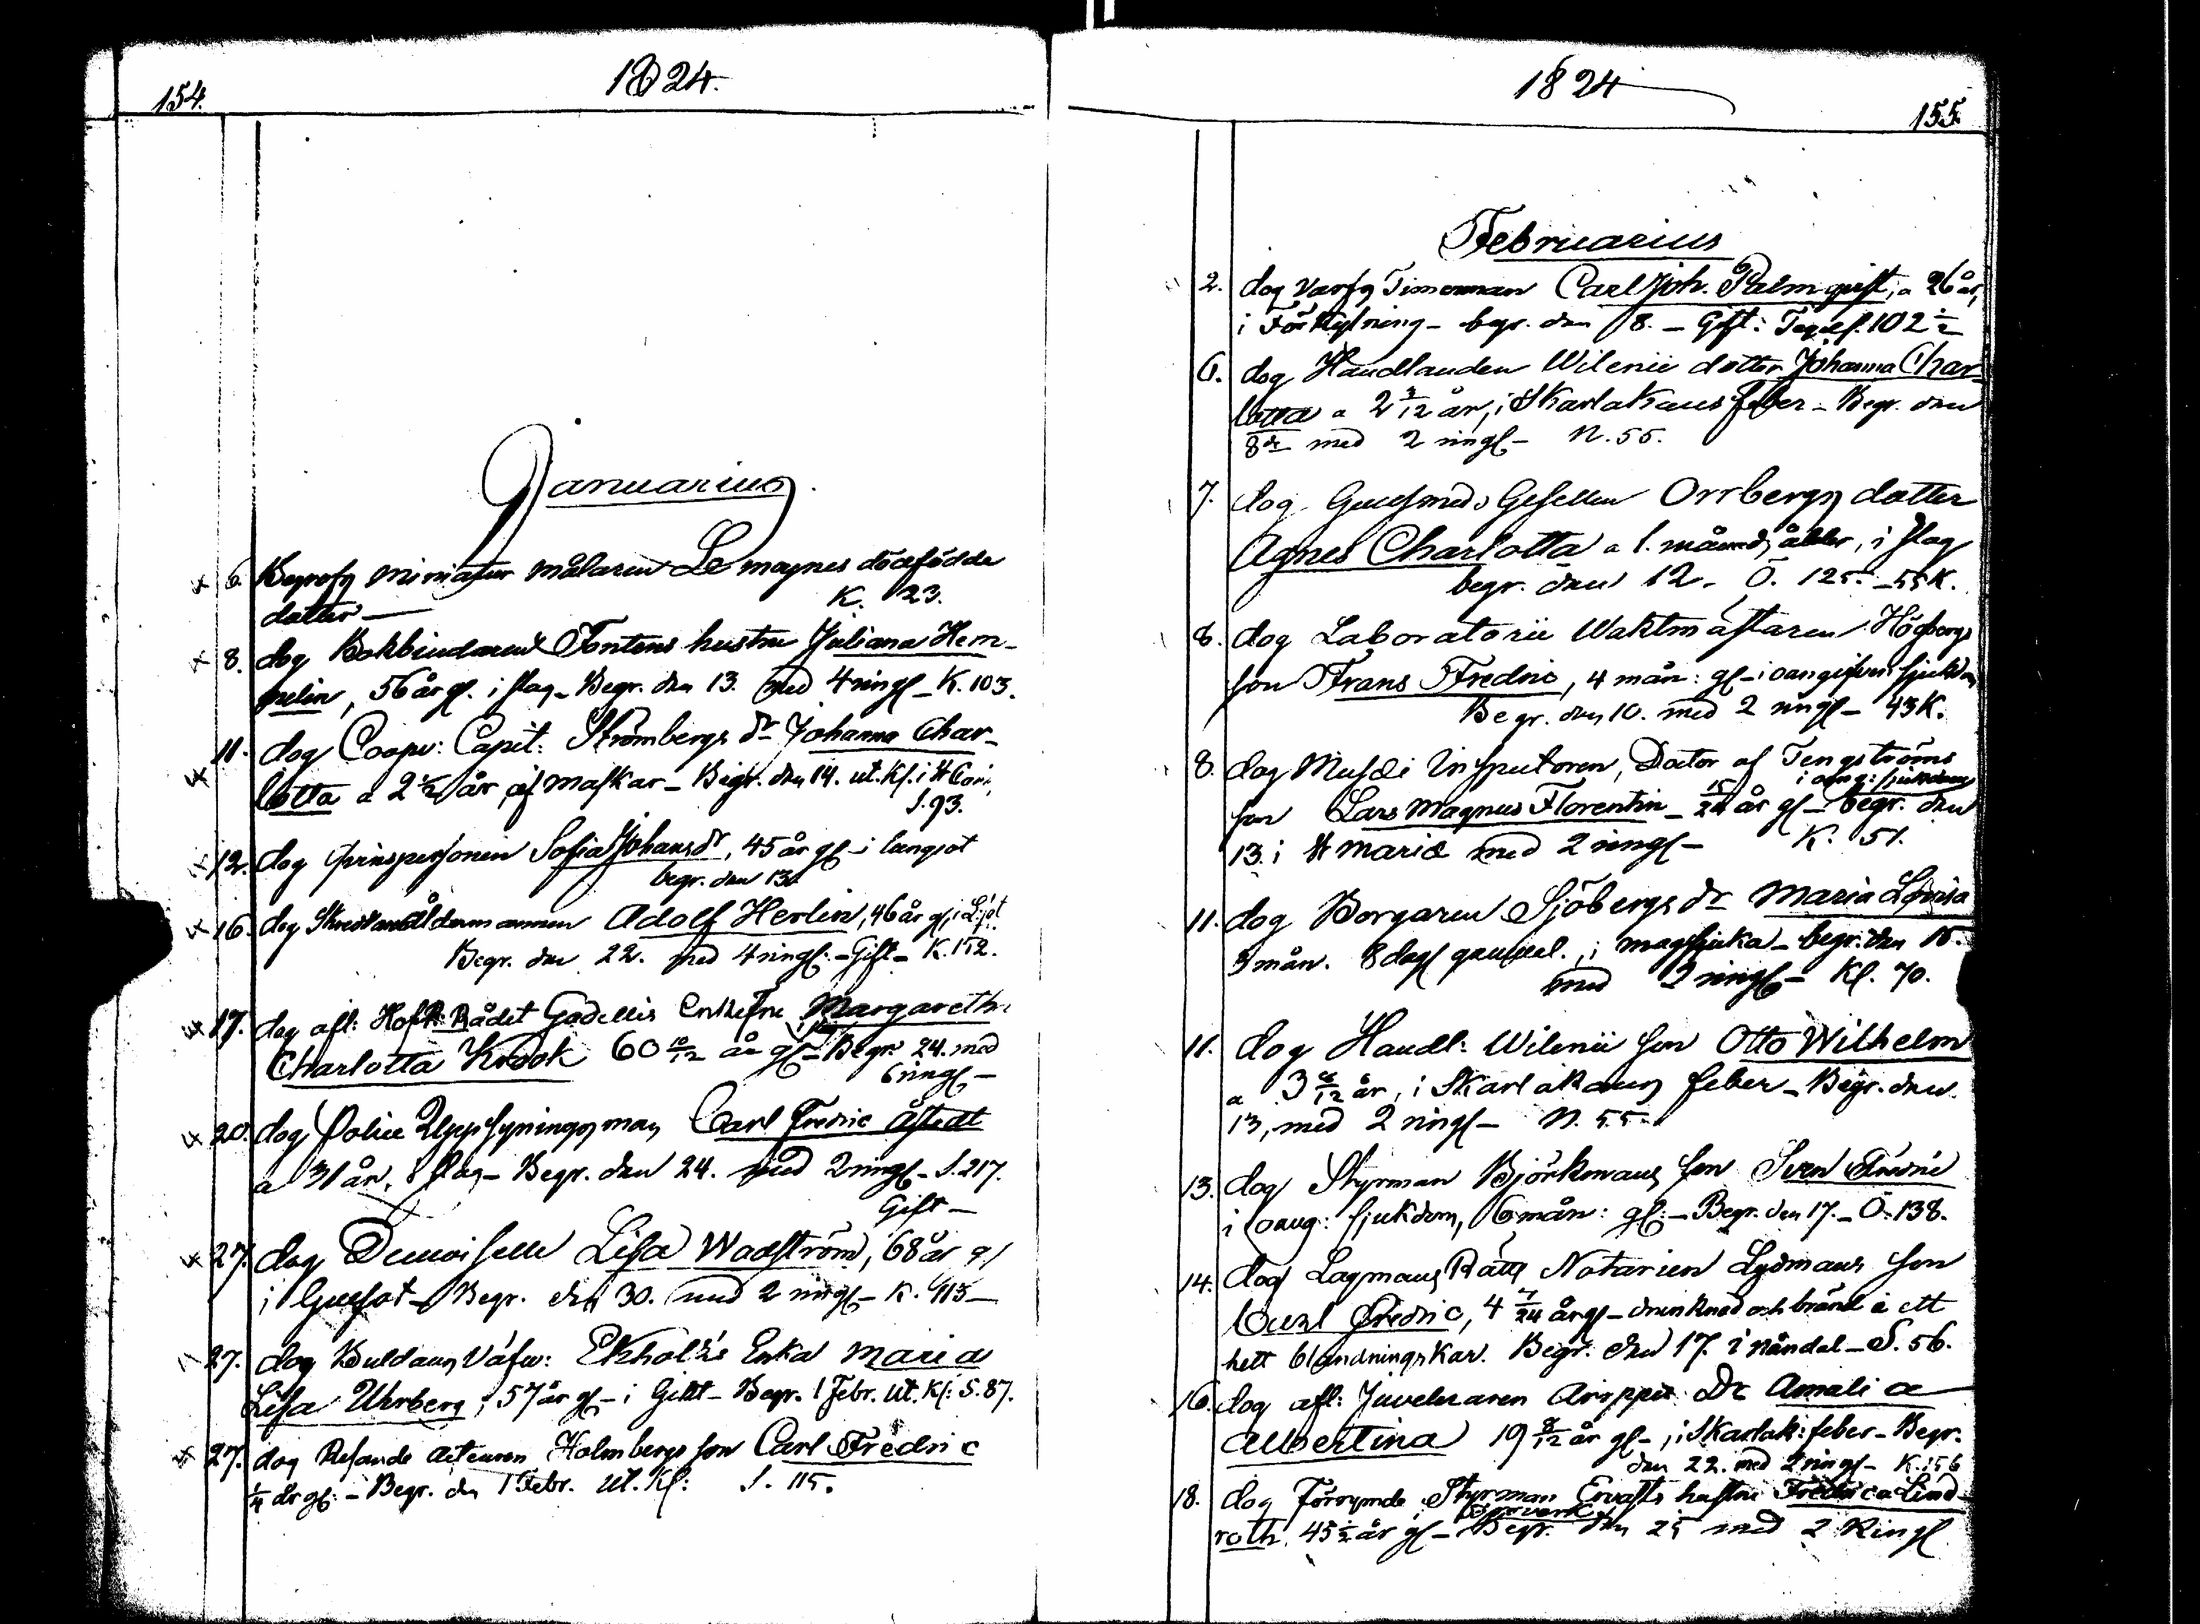 154.
1824.
Januarius
6. Begrofs Miniatur målaren Le moynes dödfödda
dotter — K. 23.
8. dog Bokbindaren Tontens hustru Juliana Hem-
pelin, 56 år gl. i slag - Begr. den 13. med 4 ringl - K. 103.
11. dog Coopv: Capit: Strömbergs dr Johanna Char-
lotta a 2 1/2 år, af maskar - Begr. den 14. ut. Kl. i
S. 93.
12. dog Sofia Johansdr, 45 år gl - i langsot
begr. den 13.
16. dog Adolf Herlin, 46 år gl,
Begr. den 22. med 4 ringl: - Gift - K. 152.
17. dog afl: HofR Rådet Godellii Enkefru Margareth.
i slag
Charlotta Krook 60 10/12 år gl - Begr. 24. med
6 ringl -
20. dog Police Uppsyningsman Carl Fredric Åstedt
a 31 år, i slag - Begr. den 24. med 2 ringl - S. 217.
Gift -
27. dog Demoiselle Lisa Wadström, 68 år gl
i Gulsot - Begr. den 30. med 2 ringl - K. 113 -
27. dog Buldans Väfv: Ekholms Enka Maria
Lisa Uhrberg, 57 år gl - i Gikt - Begr. 1 Febr. ut. Kl: S. 87.
27. dog Resande Acteuren Holmbergs son Carl Fredric
1/4 år gl: - Begr. den 1 Febr. ut. Kl: S. 115.
1824
155.
Februarius
2. dog Varfs Timerman Carl Joh. Palmqvist, a 26 år,
i Förkylning - begr. den 8. - Gift: 102 1/2
6. dog Handlanden Wilenii dotter Johanna Char-
lotta a 2 3/12 år, i Skarlakans feber - Begr. den
8de med 2 ringl - N. 55.
7. dog Guldsmeds Gesellen Orrbergs dotter
Agnes Charlotta a 1. månads ålder, i slag
begr. den 12. Ö. 125. - 55 K.
8. dog Laboratorii Waktmästaren Högbergs
son Frans Fredric, 4 mån: gl - i oangifven sjukdom
Begr. den 10. med 2 ringl - 43 K.
8. dog Musei Inspectoren, Doctor af Tengströms
i oang: sjukdom
son Lars Magnus Florentin - 15/24 år gl - begr. den
13. i St Mariæ med 2 ringl - K. 51.
11. dog Borgaren Sjöbergs dr Maria Lovisa
3 mån. 8 dags gammal., i magsjuka - begr. den 15.
med 2 ringl - Kl. 70.
11. dog Handl. Wilenii son Otto Wilhelm
a 3 8/12 år, i Skarlakans feber - Begr. den
13, med 2 ringl - N. 55.
13. dog Styrman Björkmans son Sven Fredric
i oang: sjukdom, 6 mån: gl: - Begr. den 17. - Ö. 138.
14. dog Lagmans Rätts Notarien Lydmans son
Carl Fredric, 4 år gl - drunknad och bränd i ett
hett blandningskar. Begr. den 17. i Nåndal - S. 56.
16. dog afl: Juveleraren Aroppii Dr Amalia
Albertina 19 8/12 år gl -, i Skarlak: feber - Begr.
den 22. med 2 ringl - K. 156
18. dog Förrymde Styrman Ervasts hustru Fredrica Lind-
roth 45 1/2 år gl - Begr. den 25 med 2 Ringl